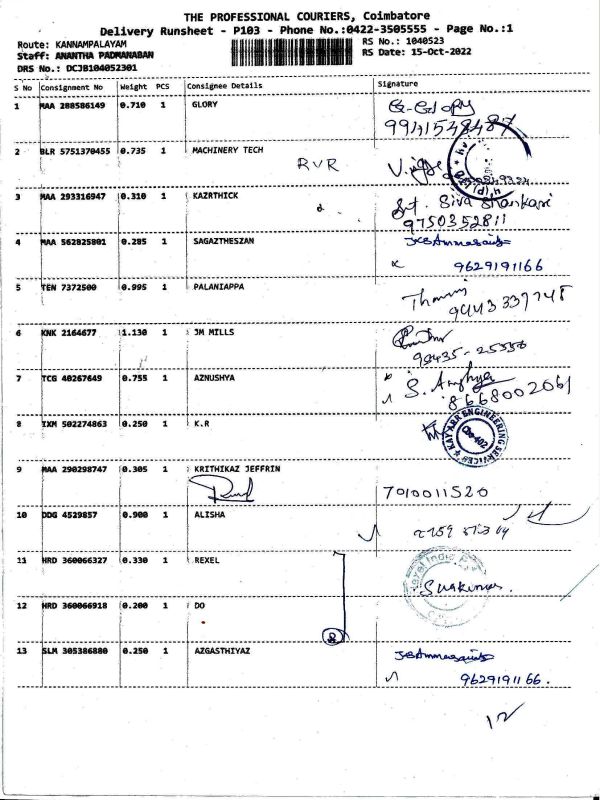 THE PROFESSIONAL COURIERS, Coimbatore
Delivery Runsheet - P103 - Phone No.:0422-3505555 - Page No.:1
Route: KANNAMPALAYAM RS No.: 1040523
Staff: ANANTHA PADMANABAN RS Date: 15-Oct-2022
DRS No.: DCJB104052301
S No Consignment No Weight PCS Consignee Details Signature
1 MAA 288586149 0.710 1 GLORY
9941538487
2 BLR 5751370455 0.735 1 MACHINERY TECH RVR
3 MAA 293316947 0.310 1 KAZRTHICK Siva Shankari
9750352811
4 MAA 562825801 0.285 1 SAGAZTHESZAN
9629191166
5 TEN 7372500 0.995 1 PALANIAPPA
9443339748
6 KNK 2164677 1.130 1 JM MILLS
7 TCG 40267649 0.755 1 AZNUSHYA S. Anushya
8668002061
8 IXM 502274863 0.250 1 K.R KAY ARR ENGINEERING SERVICES
9 MAA 290298747 0.305 1 KRITHIKAZ JEFFRIN
7010011520
10 DDG 4529857 0.900 1 ALISHA
11 HRD 360066327 0.330 1 REXEL
12 HRD 360066918 0.200 1 DO
13 SLM 305386880 0.250 1 AZGASTHIYAZ
9629191166.
12